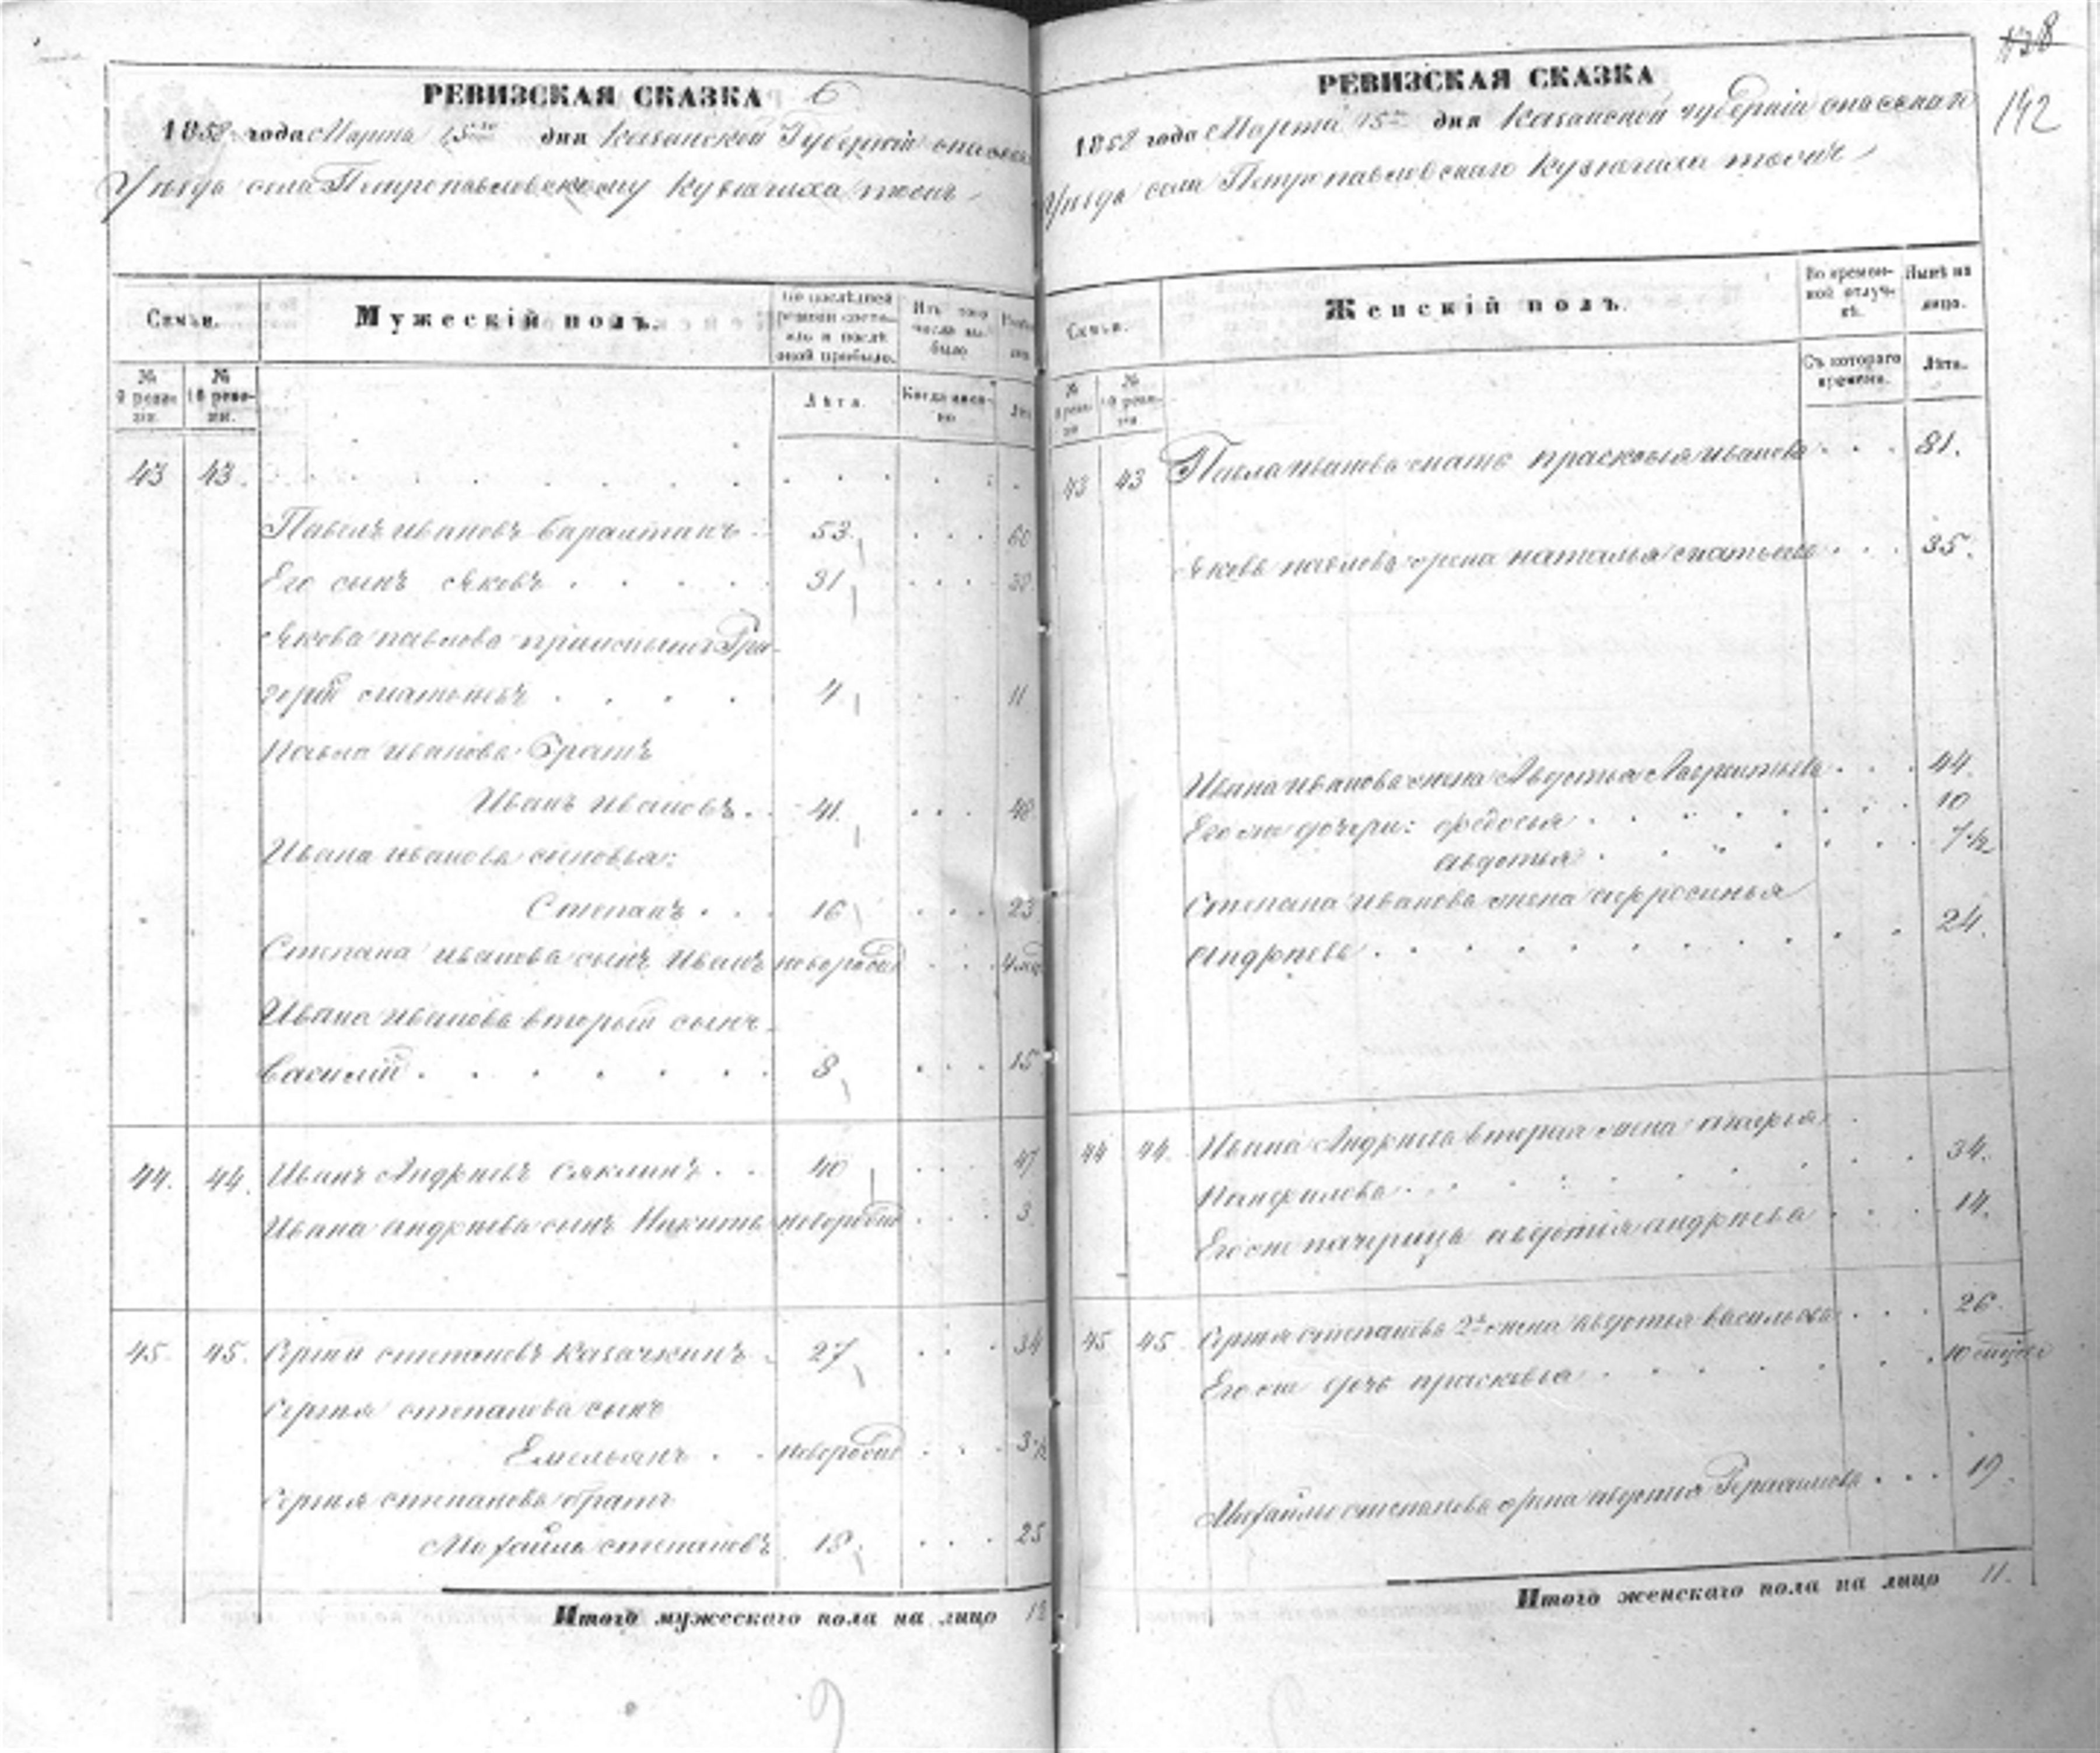 РЕВИЗСКАЯ СКАЗКА 6
1858 года Марта 15го дня Казанской Губернiи
Уезда села Петропавловскому Кузнечиха тожъ
Семьи.
Мужескiй полъ.
По послѣдней ревизiи состояло и послѣ оной прибыло.
Изъ того числа выбыло
№ 9 ревизiи.
№ 10 ревизiи.
Лѣта.
Когда именно
43 43.
Павелъ Ивановъ 53. 60
Его сынъ Яковъ 31 38
Якова Павлова прiемышъ Гри-
горiй 4 11
Павла Иванова братъ
Иванъ Ивановъ 41. 48
Ивана Иванова сыновья:
Степанъ 16 23
Степана Иванова сынъ Иванъ новорожд
Ивана Иванова вторый сынъ
Василiй 8 15
44. 44. Иванъ Андреевъ Сяклинъ 40 47
Ивана Андреева сынъ Никита новорожд 3
45. 45. Сергей Степановъ Казачкинъ 27 34
Сергея Степанова сынъ
Емельянъ новорожд 3½
Сергея Степанова братъ
Михайла Степановъ 18 25
Итого мужескаго пола на лицо 12.
138
142
РЕВИЗСКАЯ СКАЗКА
1858 года Марта 15го дня Казанской губернiи Спаскаго
Уезда села Петропавловскаго Кузнечиха тожъ
Семьи.
Женскiй полъ.
Во временной отлучкѣ.
Нынѣ на лицо.
№ 9 ревизiи
№ 10 ревизiи
Съ котораго времени.
Лѣта.
43 43 Павла Иванова мать Прасковья Иванова 81.
Якова Павлова жена Наталья 35.
Ивана Иванова жена Авдотья 44.
Его же дочери: Федосья 10
Авдотья 7½
Степана Иванова жена Афросинья
Андреева 24.
44 44. Ивана Андреева вторая жена
Панфилова 34.
Его же падчерица Авдотья Андреева 14.
45 45. Сергея Степанова 2я жена Авдотья Васильева 26.
Его же дочь Прасковья
Михайлы Степанова жена Авдотья 19.
Итого женскаго пола на лицо 11.